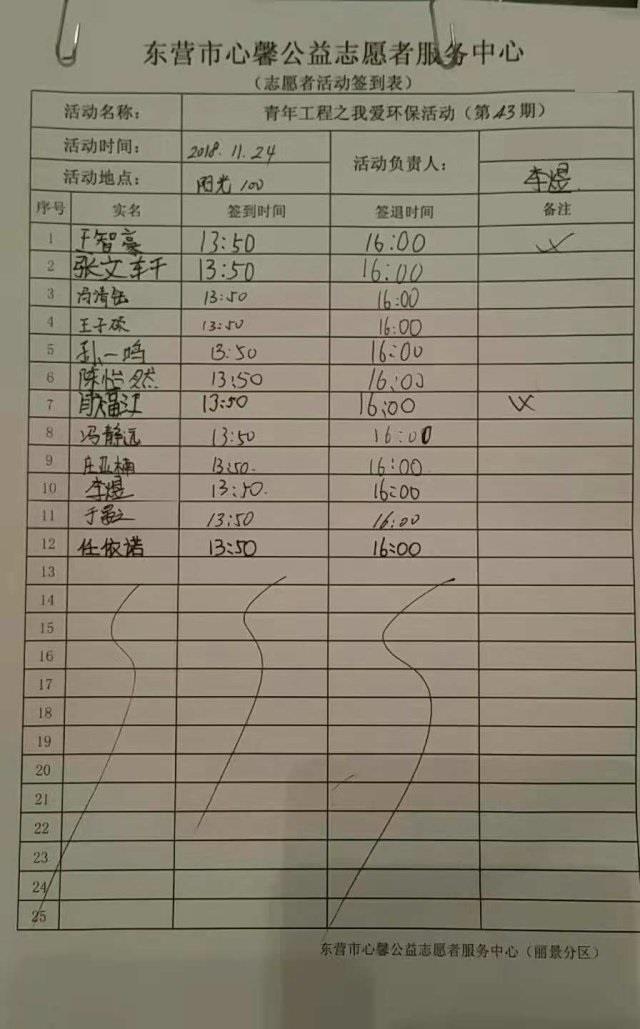 东营市心馨公益志愿者服务中心
（志愿者活动签到表）
活动名称： 青年工程之我爱环保活动（第43期）
活动时间： 2018.11.24 活动负责人： 李煜
活动地点： 阳光100
序号 实名 签到时间 签退时间 备注
1 王智豪 13:50 16:00
2 张文轩 13:50 16:00
3 13:50 16:00
4 王子硕 13:50 16:00
5 孙一鸣 13:50 16:00
6 陈怡然 13:50 16:00
7 肖福江 13:50 16:00
8 冯静远 13:50 16:00
9 庄亚楠 13:50. 16:00
10 李煜 13:50. 16:00
11 13:50 16:00
12 任依诺 13:50 16:00
13
14
15
16
17
18
19
20
21
22
23
24
25
东营市心馨公益志愿者服务中心（丽景分区）